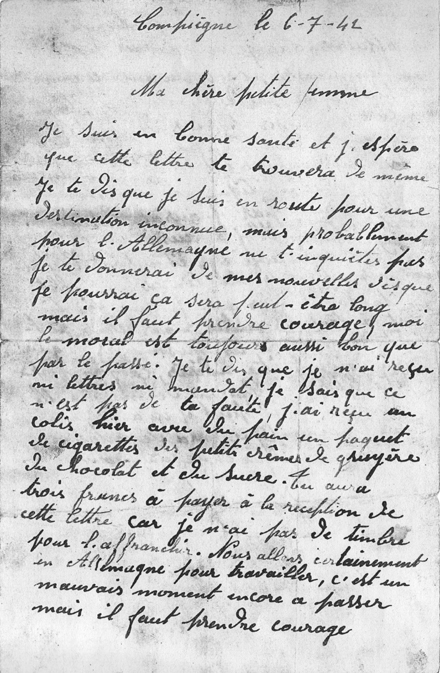 Compiègne le 6-7-42
Ma chère petite femme
Je suis en bonne santé et j'espère
que cette lettre te trouvera de même
Je te dis que je suis en route pour une
destination inconnue, mais probablement
pour l'Allemagne ne t'inquiètes pas
je te donnerai de mes nouvelles dis que
je pourrai ça sera peut-être long
mais il faut prendre courage, moi
le moral est toujours aussi bon que
par le passé. Je te dis que je n'ai reçu
ni lettres ni mandat, je sais que ce
n'est pas de ta faute, j'ai reçu un
colis hier avec du pain un paquet
de cigarettes des petits crèmes de gruyère
du chocolat et du sucre. tu aura
trois francs à payer à la réception de
cette lettre car je n'ai pas de timbre
pour l'affranchir. Nous allons certainement
en Allemagne pour travailler, c'est un
mauvais moment encore a passer
mais il faut prendre courage